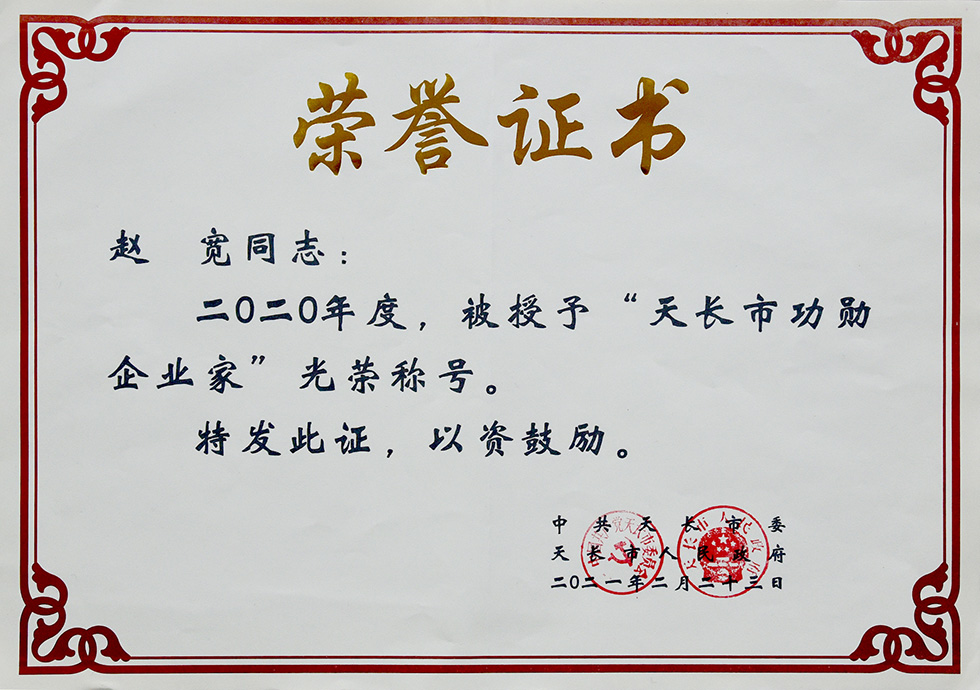 荣誉证书
赵 宽同志：
二〇二〇年度，被授予“天长市功勋
企业家”光荣称号。
特发此证，以资鼓励。
中共天长市委
天长市人民政府
二〇二一年二月二十三日
天长市人民政府